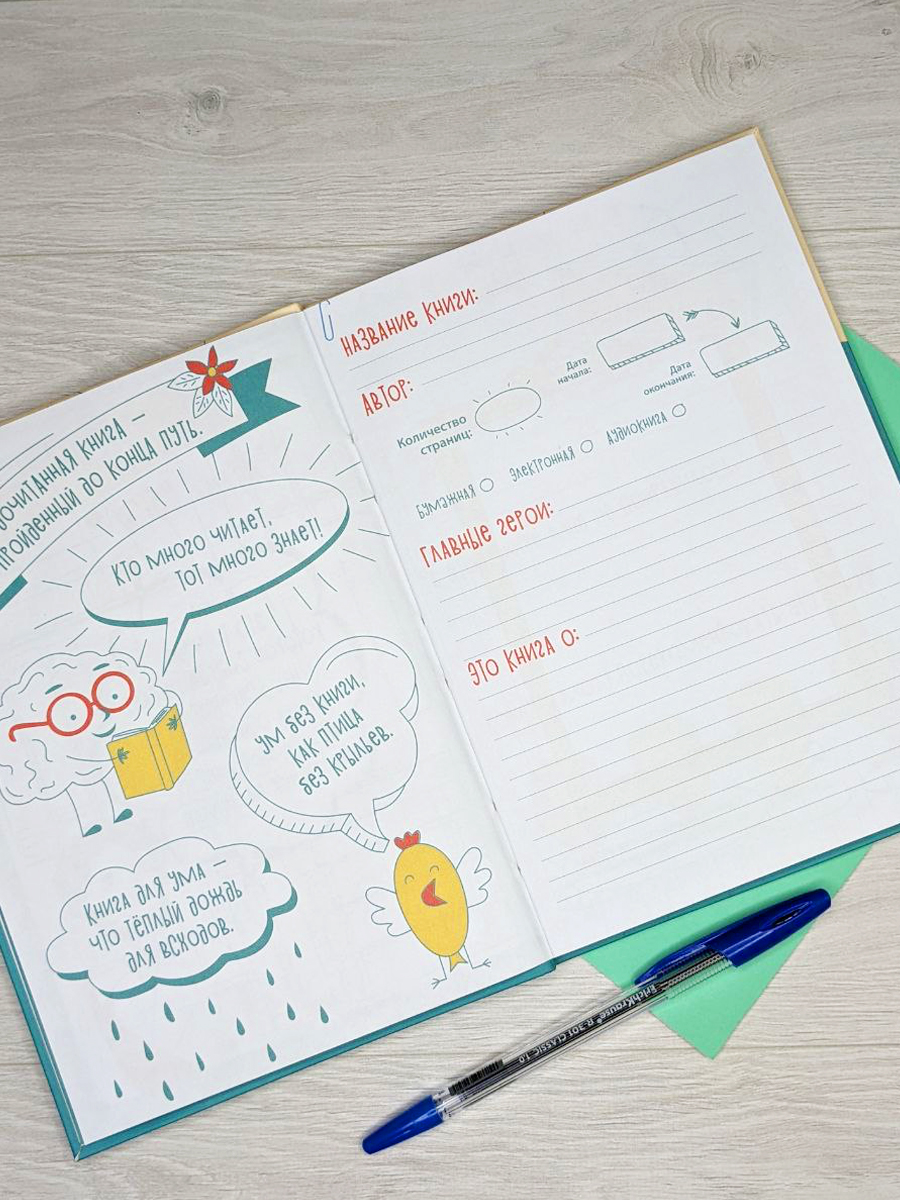 КНИГА —
ПРОЙДЕННЫЙ ДО КОНЦА ПУТЬ.
КТО МНОГО ЧИТАЕТ,
ТОТ МНОГО ЗНАЕТ!
УМ БЕЗ КНИГИ,
КАК ПТИЦА
БЕЗ КРЫЛЬЕВ.
КНИГА ДЛЯ УМА —
ЧТО ТЁПЛЫЙ ДОЖДЬ
ДЛЯ ВСХОДОВ.
НАЗВАНИЕ КНИГИ:
АВТОР:
Количество
страниц:
Дата
начала:
Дата
окончания:
БУМАЖНАЯ ЭЛЕКТРОННАЯ АУДИОКНИГА
ГЛАВНЫЕ ГЕРОИ:
ЭТО КНИГА О:
ErichKrause® R-301 CLASSIC 1.0